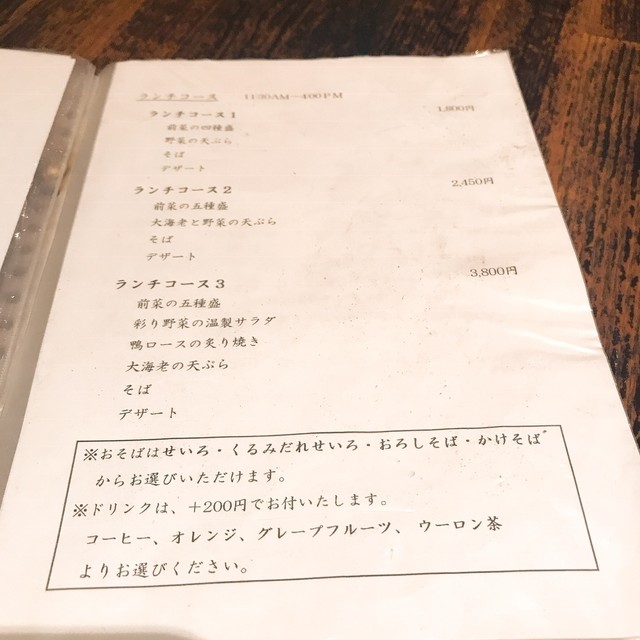 ランチコース 11:30AM－4:00PM
ランチコース1 1,800円
前菜の四種盛
野菜の天ぷら
そば
デザート
ランチコース2 2,450円
前菜の五種盛
大海老と野菜の天ぷら
そば
デザート
ランチコース3 3,800円
前菜の五種盛
彩り野菜の温製サラダ
鴨ロースの炙り焼き
大海老の天ぷら
そば
デザート
※おそばはせいろ・くるみだれせいろ・おろしそば・かけそば
からお選びいただけます。
※ドリンクは、＋200円でお付いたします。
コーヒー、オレンジ、グレープフルーツ、ウーロン茶
よりお選びください。